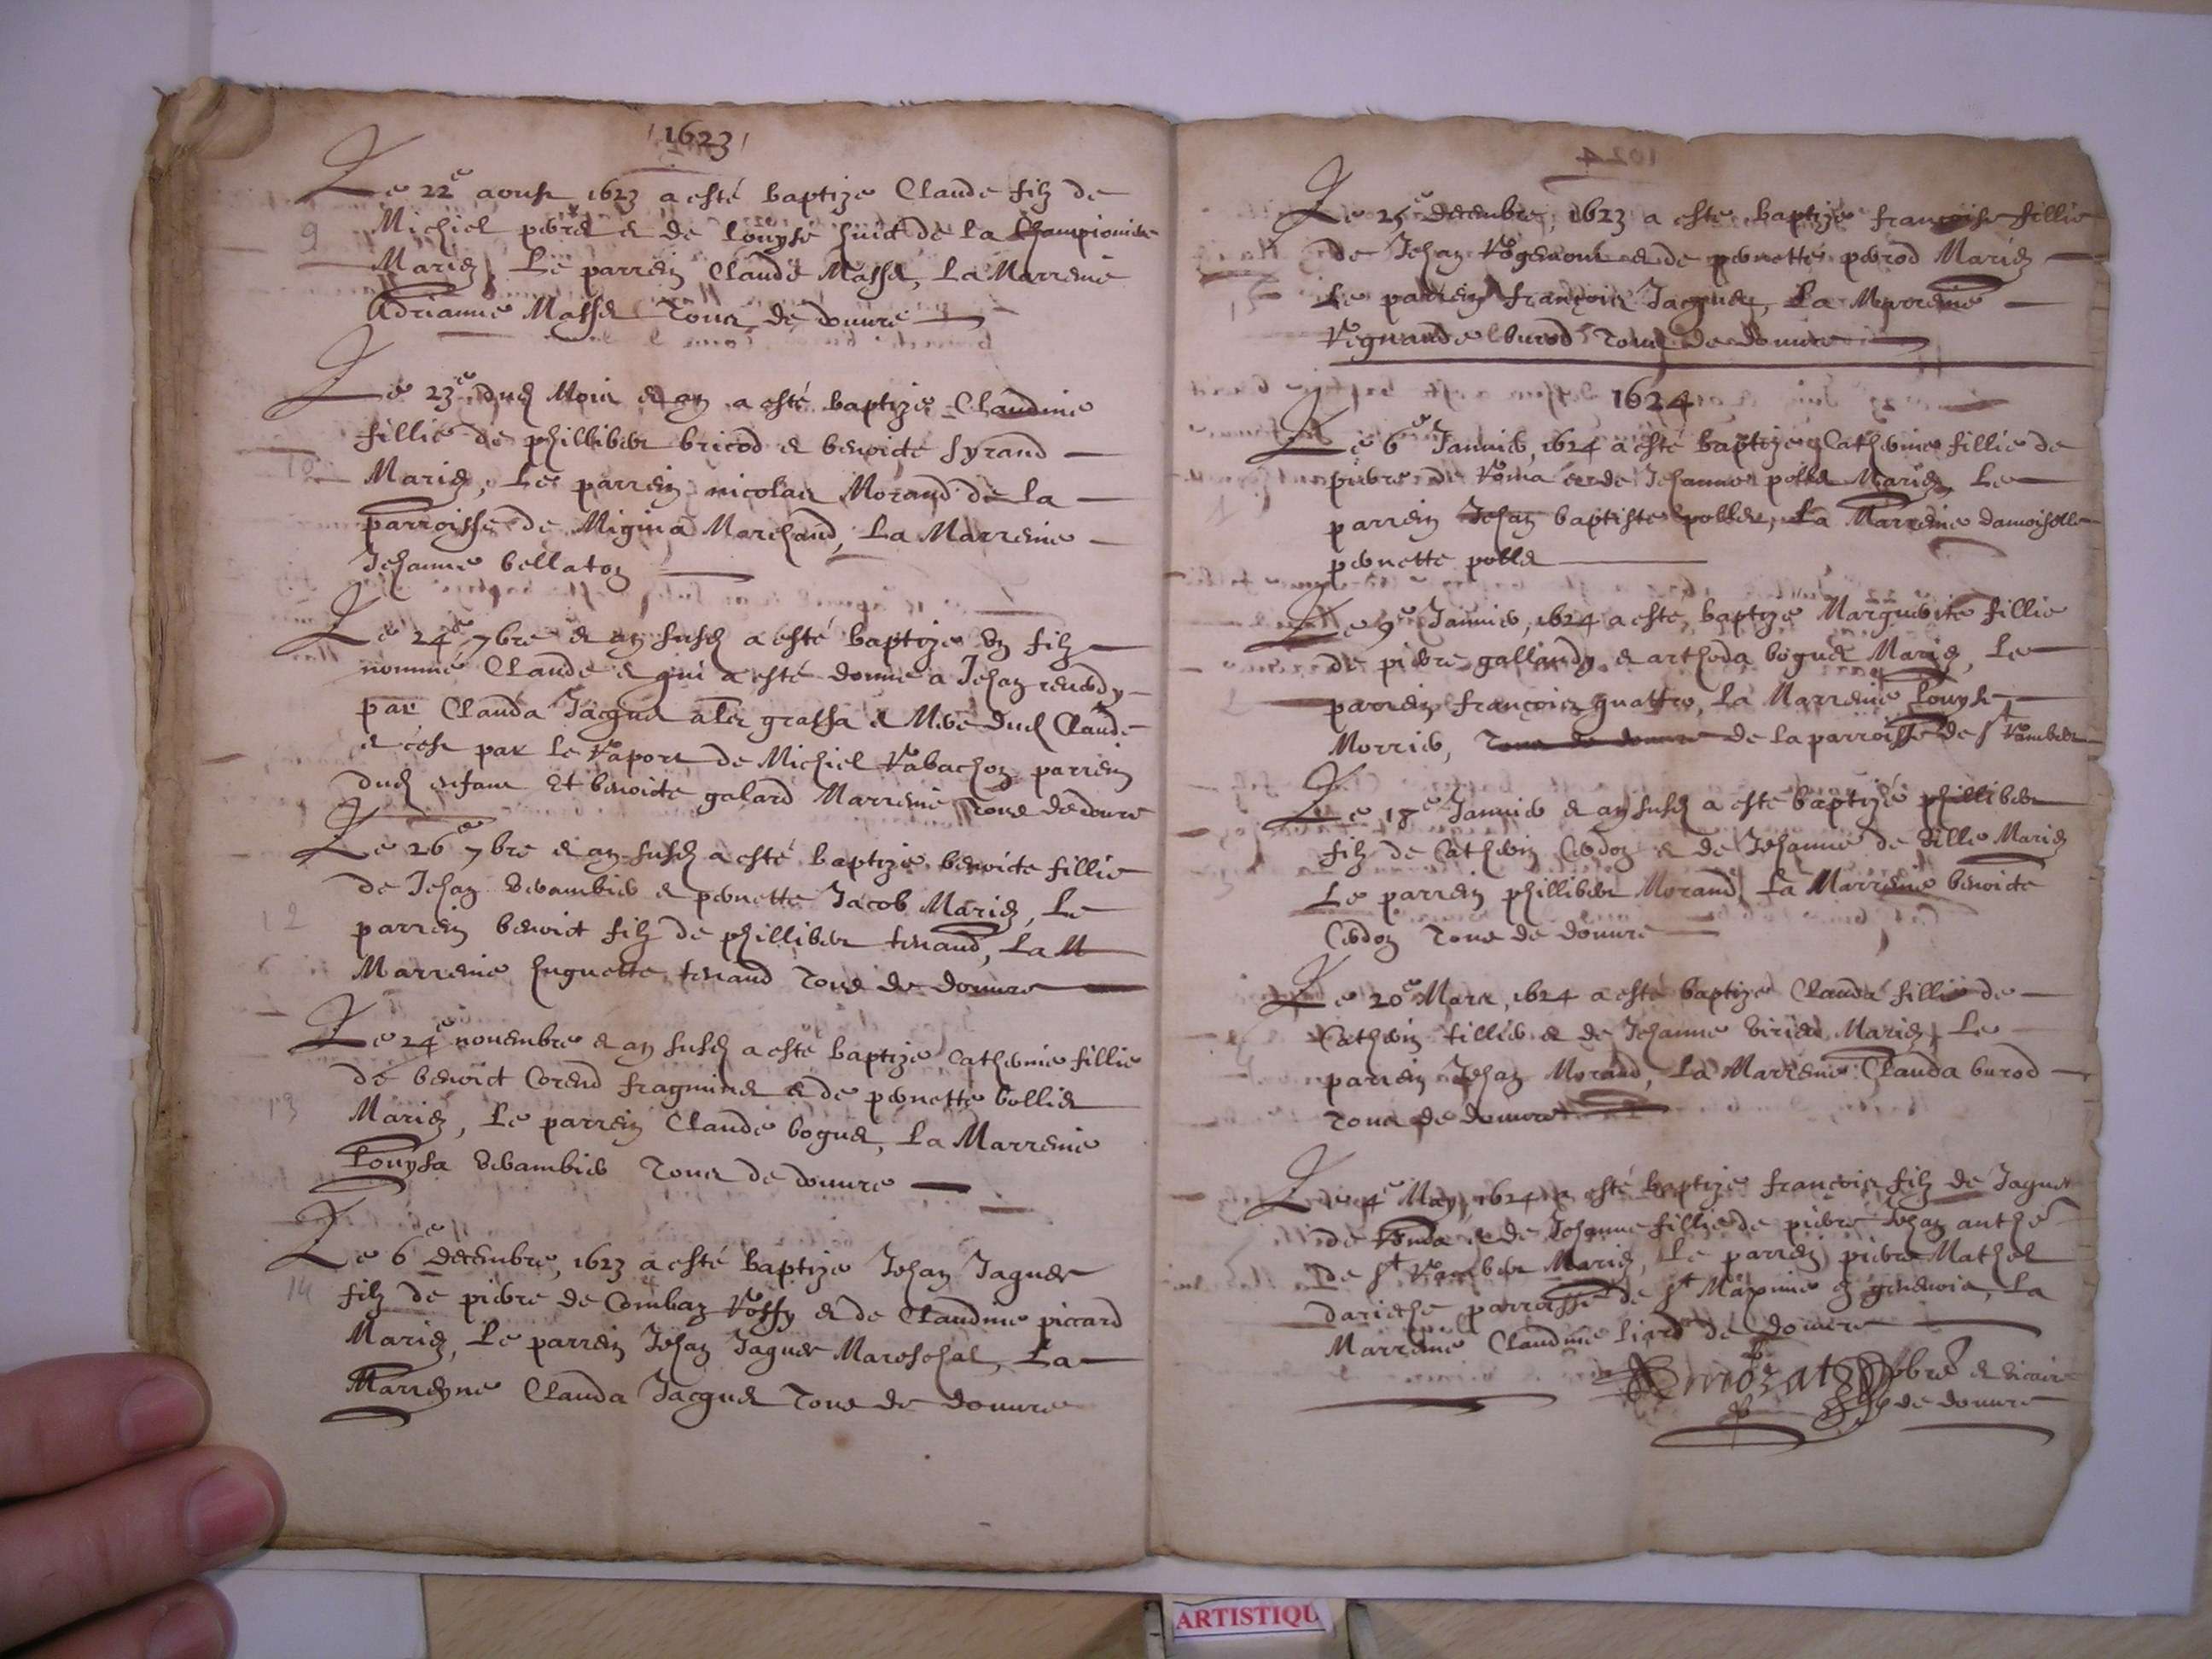 1623
Le 22e aoust 1623 a esté baptize Claude filz de
9
Michiel et de Louyse huict de la Championiere
Mariez, Le parrein Claude Masset, La Marreine
Adrianne Masset Tous de douure
Le 23e dud Mois et an a esté baptizé Claudine
fillie de phillibert bricod et benoicte syrand
10
Mariez, Le parrein nicolas Morand de la
parroisse de Migina Marchand, La Marreine
Jehanne bellaton
Le 24e 7bre et an susd a esté baptize un filz
nommé Claude et qui a esté donné a Jehan
par Clauda Jacquet grassa et Mere dud Claude
et cest par le Raport de Michiel Rabachon parrein
dud enfant Et benoicte galard Marreine Tous de douure
Le 26e 7bre et an susd a esté baptize benoicte fillie
de Jehan et pernette Jacob Mariez, Le
12
parrein benoict filz de phillibert tenand, La M
Marreine huguette tenand Tous de douure
Le 24e nouembre et an susd a esté baptize Catherine fillie
de benoict Corend et de pernette bolliet
13
Mariez, Le parrein Claude boguet, La Marreine
Louysa Tous de douure
Le 6e decembre, 1623 a esté baptize Jehan Jaques
14
filz de pierre de Combaz Rossy et de Claudine piccard
Mariez, Le parrein Jehan Jaques Mareschal, La
Marreyne Clauda Jacquet Tous de douure
Le 25e decembre, 1623 a esté baptizé françoise fillie
de Jehan et de pernette perrod Mariez
Le parrein françois Jacquet, La Marreine
burod Tous de douure
1624
Le 6e Januier, 1624 a esté baptizé Catherine fillie de
pierre de Roma et de Jehanne pollet Mariez Le
parrein Jehan baptiste pollet, La Marreine damoiselle
pernette pollet
Le 9e Januier, 1624 a esté baptize Marguerite fillie
de pierre gallendy et arthoda boguet Mariez, Le
parrein françois quattro, La Marreine Louyse
Morrier, Tous de douure de la parroisse de St Rambert
Le 18e Januier et an susd a esté baptizé phillibert
filz de Catherin Cerdon et de Jehanne de Ville Mariez
Le parrein phillibert Morand, La Marreine benoicte
Cerdon Tous de douure
Le 20e Mars, 1624 a esté baptize Clauda fillie de
Catherin tillier et de Jehanne Mariez, Le
parrein Jehan Morand, La Marreine Clauda burod
Tous de douure
Le 4e May, 1624 a esté baptize françois filz de Jaques
de et de Jehanne fillie de pierre Jehan
de St Rambert Mariez, Le parrein pierre Mathet
parroisse de St Maxime La
Marreine Claudine liard de douure
pbre et vicaire
de douure
ARTISTIQU